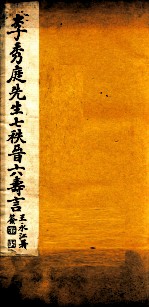 李秀庭先生七秩晉六壽言
王永江署簽